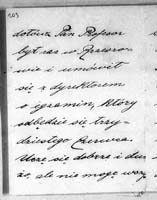 103
dotową Pan Profesor
był raz w Rzeszo-
wie i umówił
się z dyrektorem
o egzamin, który
odbędzie się trzy-
dziestego Czerwca.
Uczę się dobrze i du-
żo, ale nie mogę